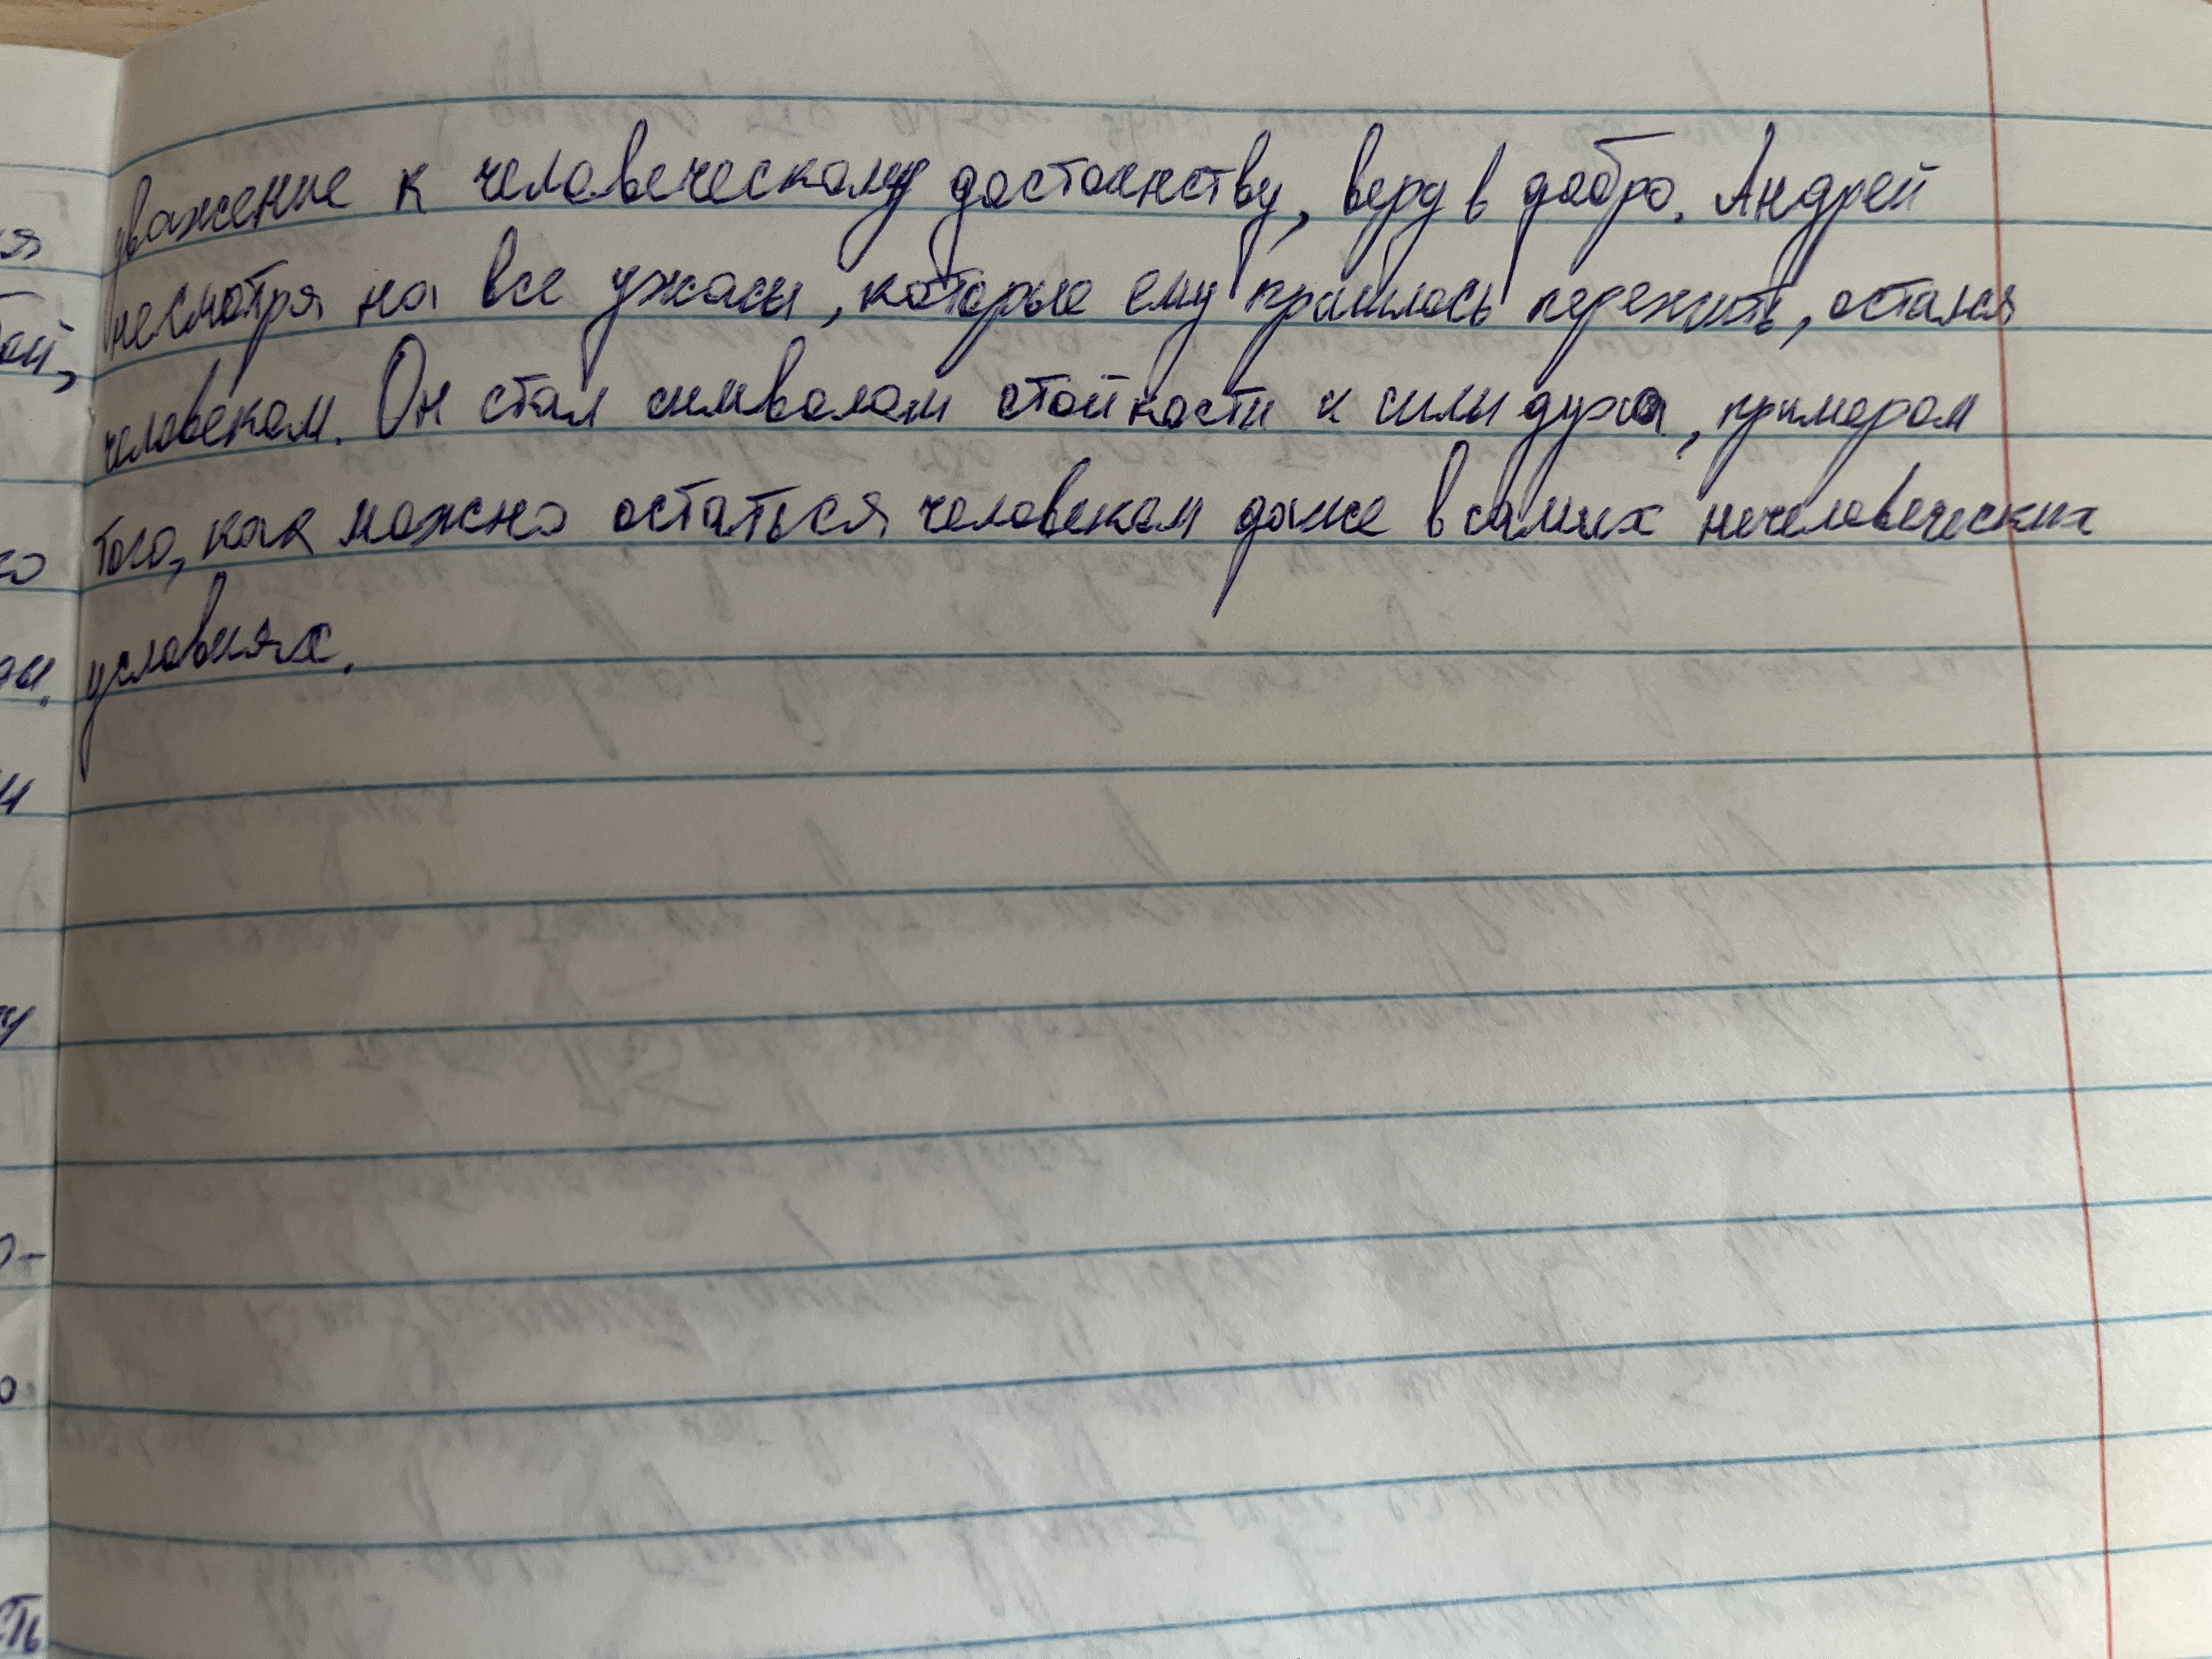 уважение к человеческому достоинству, веру в добро. Андрей
несмотря на все ужасы, которые ему пришлось пережить, остался
человеком. Он стал символом стойкости и силы духа, примером
того, как можно остаться человеком даже в самых нечеловеческих
условиях.